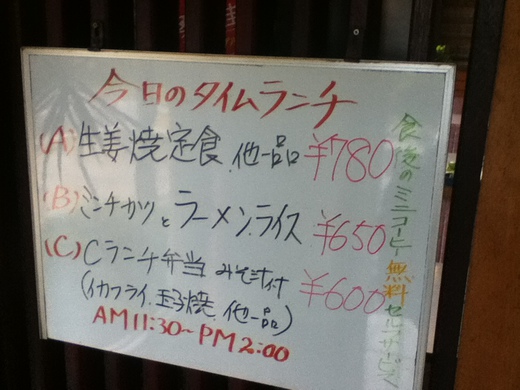 今日のタイムランチ
(A) 生姜焼定食.他一品 ¥780
(B) ミンチカツとラーメン.ライス ¥650
(C) Cランチ弁当 みそ汁付 ¥600
(イカフライ.玉子焼.他一品)
AM11:30~PM2:00
食後のミニコーヒー無料セルフサービス